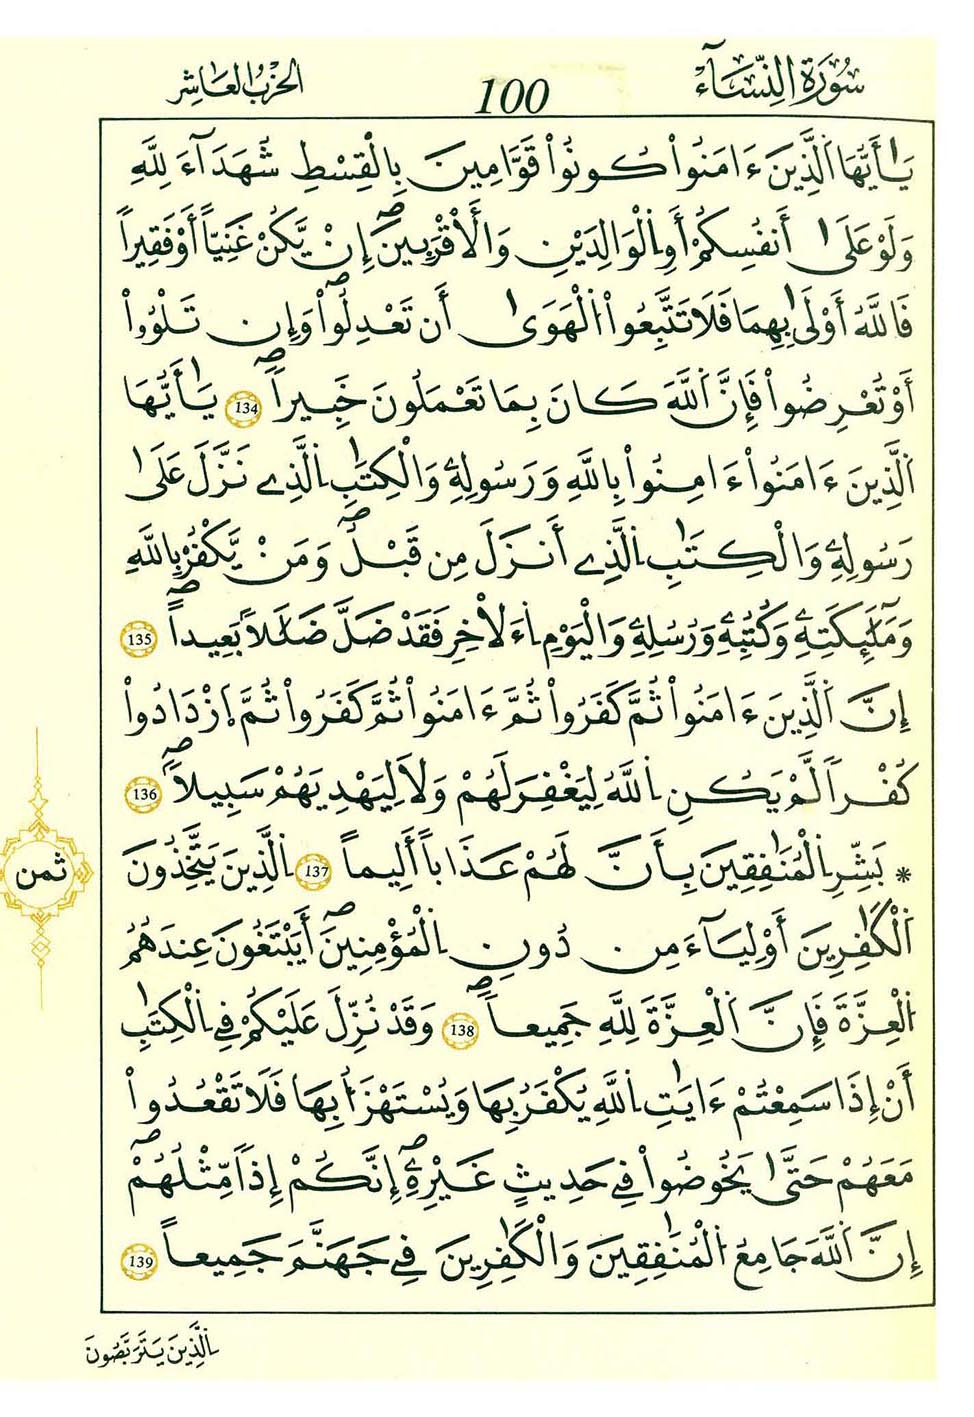 سُورَةُ النِّسَآءِ
100
الحزب العاشر
يَٰٓأَيُّهَا اَ۬لذِينَ ءَامَنُواْ كُونُواْ قَوَّٰمِينَ بِالْقِسْطِ شُهَدَآءَ لِلهِ
وَلَوْ عَلَىٰٓ أَنفُسِكُمُۥٓ أَوِ اِ۬لْوَٰلِدَيْنِ وَالَاقْرَبِينَۖ إِنْ يَّكُنْ غَنِيّاً أَوْ فَقِيراً
فَاللَّهُ أَوْلَىٰ بِهِمَا فَلَا تَتَّبِعُواْ اُ۬لْهَوَىٰٓ أَن تَعْدِلُواْۖ وَإِن تَلْوُۥٓاْ
أَوْ تُعْرِضُواْ فَإِنَّ اَ۬للَّهَ كَانَ بِمَا تَعْمَلُونَ خَبِيراًۖ 134 يَٰٓأَيُّهَا
اَ۬لذِينَ ءَامَنُوٓاْ ءَامِنُواْ بِاللَّهِ وَرَسُولِهِۦ وَالْكِتَٰبِ اِ۬لذِے نَزَّلَ عَلَىٰ
رَسُولِهِۦ وَالْكِتَٰبِ اِ۬لذِےٓ أَنزَلَ مِن قَبْلُۖ وَمَنْ يَّكْفُرْ بِاللَّهِ
وَمَلَٰٓئِكَتِهِۦ وَكُتُبِهِۦ وَرُسُلِهِۦ وَالْيَوْمِ اِ۬لَاخِرِ فَقَدْ ضَلَّ ضَلَٰلاَۢ بَعِيداًۖ 135
إِنَّ اَ۬لذِينَ ءَامَنُواْ ثُمَّ كَفَرُواْ ثُمَّ ءَامَنُواْ ثُمَّ كَفَرُواْ ثُمَّ اَ۪زْدَادُواْ
كُفْراً لَّمْ يَكُنِ اِ۬للَّهُ لِيَغْفِرَ لَهُمْ وَلَا لِيَهْدِيَهُمْ سَبِيلاًۖ 136
* بَشِّرِ اِ۬لْمُنَٰفِقِينَ بِأَنَّ لَهُمْ عَذَاباً أَلِيماً 137 اِ۬لذِينَ يَتَّخِذُونَ
اَ۬لْكَٰفِرِينَ أَوْلِيَآءَ مِن دُونِ اِ۬لْمُؤْمِنِينَۖ أَيَبْتَغُونَ عِندَهُمُ
اُ۬لْعِزَّةَ فَإِنَّ اَ۬لْعِزَّةَ لِلهِ جَمِيعاًۖ 138 وَقَدْ نُزِّلَ عَلَيْكُمْ فِے اِ۬لْكِتَٰبِ
أَنْ إِذَا سَمِعْتُمْ ءَايَٰتِ اِ۬للَّهِ يُكْفَرُ بِهَا وَيُسْتَهْزَأُ بِهَا فَلَا تَقْعُدُواْ
مَعَهُمْ حَتَّىٰ يَخُوضُواْ فِے حَدِيثٍ غَيْرِهِۦٓۖ إِنَّكُمُۥٓ إِذاً مِّثْلُهُمُۥٓۖ
إِنَّ اَ۬للَّهَ جَامِعُ اُ۬لْمُنَٰفِقِينَ وَالْكَٰفِرِينَ فِے جَهَنَّمَ جَمِيعاً 139
ثمن
اِ۬لذِينَ يَتَرَبَّصُونَ